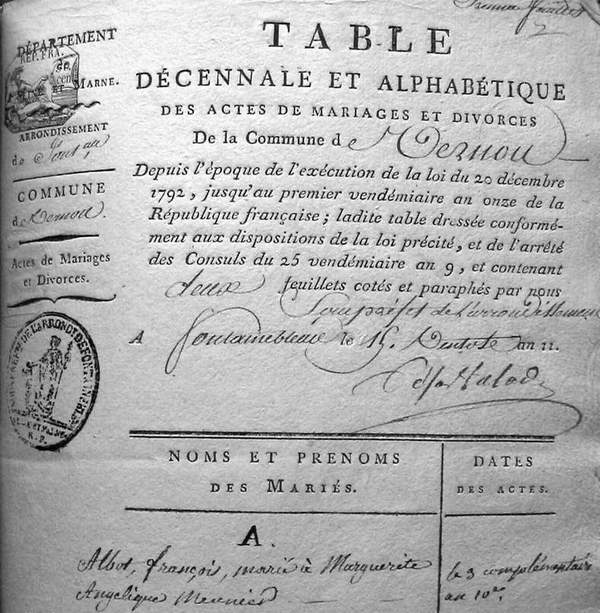 Premier feuillet
DÉPARTEMENT
RÉP. FRA.
SEINE ET MARNE.
ARRONDISSEMENT
de
COMMUNE
de Vernou.
Actes de Mariages
et Divorces.
TABLE
DÉCENNALE ET ALPHABÉTIQUE
DES ACTES DE MARIAGES ET DIVORCES
De la Commune de Vernou
Depuis l'époque de l'exécution de la loi du 20 décembre
1792, jusqu'au premier vendémiaire an onze de la
République française; ladite table dressée conformé-
ment aux dispositions de la loi précité, et de l'arrêté
des Consuls du 25 vendémiaire an 9, et contenant
deux feuillets cotés et paraphés par nous
Souspréfet de l'arrondissement
A fontainebleau le 15 an 11.
NOMS ET PRENOMS
DES MARIÉS.
DATES
DES ACTES.
A.
Albot, françois, marié à Marguerite
Angelique Meunier
le 3 complémentaire
au 10e.